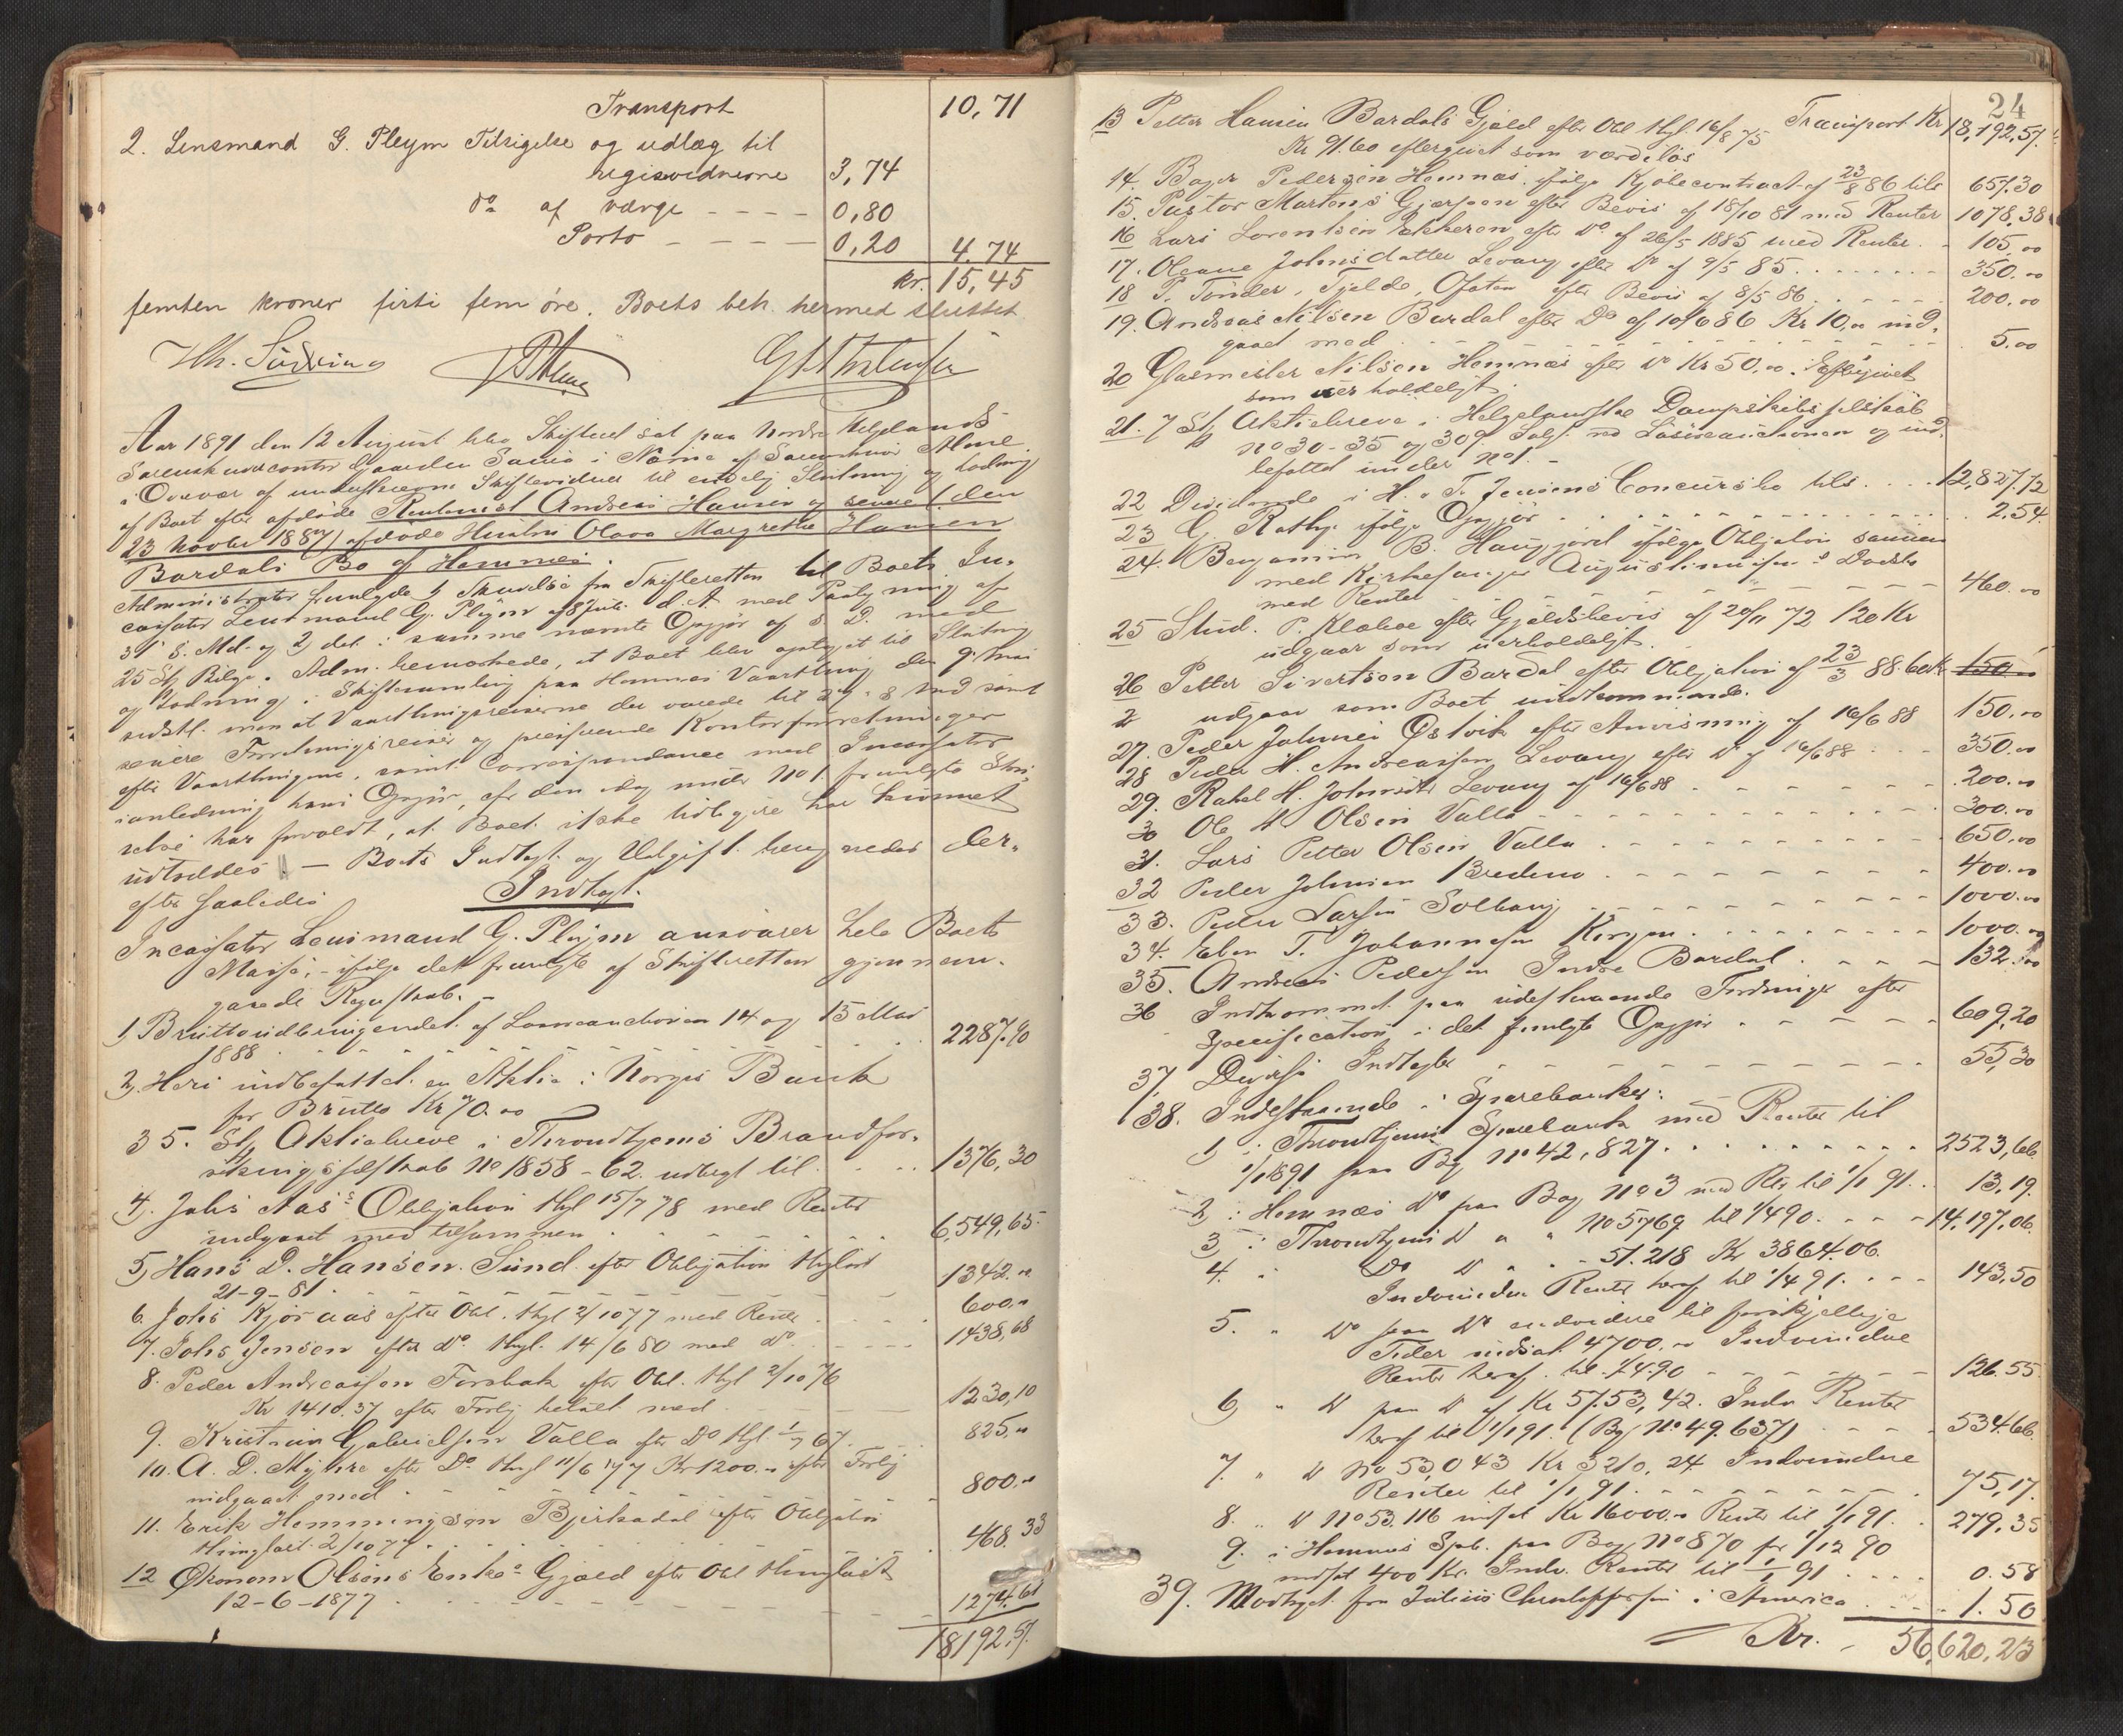 Transport 10,71
2. Lensmand G. Pleym Tilsigelse og udlæg til
regisvidnerne 3,74
do af værge - - - - 0,80
Porto - - - - 0,20 4.74
kr. 15,45
femten kroner firti fem øre. Boets beh. hermed sluttet
Aar 1891 den 12 August blev Skifteret sat paa Nordre Helgelands
Sorenskrivercontor Gaarden i Nærvær af Sorenskriver
i Overvær af underskrevne Skiftevidner til endelig Slutning og Lodning
af Boet efter afdøde Andreas Hansen og senere (den
23 Novbr 1887) afdøde Hustru Olava Margrethe Hansen
Bardals Bo af Hemnes.
Administrator fremlagde 1) Skrivelse fra Skifteretten til Boets In-
cassator Lensmand G. Pleym af 8 Juli d. A. med Paategning af
31 s. Md. og 2) det i samme nævnte Opgjør af s. D. med
25 St. Bilge. Adm. bemærkede, at Boet blev optaget til Slutning
og Lodning i Skiftesamling paa Hemnes Vaarthing den 9 Mai
sidstl. men at Vaarthingsreiserne der varede til 29. s. Md samt
senere Forretningsreiser og Kontorforretninger
efter Vaarthingene, samt Correspondance med Incassator
i anledning hans Opgjør, af den idag under No 1 fremlagte Skri-
velse har forvoldt, at Boet ikke tidligere har kunnet
udloddes. — Boets Indtægt og Udgift beregnedes der-
efter saaledes
Indtægt.
Incassator Lensmand G. Pleym ansvarer hele Boets
Masse, - ifølge det fremlagte af Skifteretten gjennem-
gaaede Regnskab. -
1) Bruttoudbringendet af Løsøreauctionen 14 og 15 Mai
1888 - - - - 2287.90
2) Heri indbefattet en Aktie i Norges Bank
for Brutto Kr 70.00
3 5. St. Aktiebreve i Throndhjems Brandfor-
sikringsselskab No 1858 - 62. udbragt til . . . 1376,30
4). Johs Aas's Obligation thgl 15/7 78 med Renter
indgaaet med tilsammen . . . . 6,549,65.
5) Hans D. Hansen Sund efter Obligation thinglæst
21-9-81 - - - - 1342.00
6. Johs Kjøraas efter Obl. thgl 2/10 77 med Renter . . . 600.00
7. Johs Jensen efter Do. thgl. 14/6 80 med do. - - - - 1438,68
8. Peder Andreassen Forsbak efter Obl. thgl 2/10 76
Kr 1410.37 efter Forlig betalt med - - - - 1230,10
9. Kristian Gabrielsen Valla efter Do thgl 67. . . 825.00
10. A. D. Myhre efter Do. thgl 11/6 77 Kr 1200.00 efter Forlig
indgaaet med - - - - 800.00
11. Erik Hemmingsen Bjerkadal efter Obligation
thinglæst 2/10 77. . . . 468.33
12 Økonom Olsens Enkes Gjæld efter Obl thinglæst
12-6-1877 - - - - 1274.61
18192.57.
24
13 Petter Hansen Bardals Gjæld efter Obl thgl 16/8 75 Transport Kr 18,192,57.
Kr 91.60 eftergivet som værdiløs
14. Peder­sen Hemnæs ifølge Kjøbecontract af 23/8 86 bilr 651.30
15. Pastor Martens Gjerpen efter Bevis af 18/10 81 med Renter 1078,38
16 Lars Lorentsen efter Do. af 26/5 1885 med Renter. - 105.00
17. Oleane Johnsdatter Levang efter Do af 9/5 85. . . . 350.00
18 P. Tønder, Tjelde, Ofoten efter Bevis af 8/5 86. . . . 200.00
19. Andreas Nilsen Bardal efter Do af 10/6 86 Kr 10.00 ind-
gaaet med - - - - 5.00
20 Glasmester Nilsen Hemnæs efter Do Kr 50.00. Eftergivet
som uerholdeligt.
21. 7 St. Aktiebreve i Helgelandske Dampskibsselskab
No 30-35 og 309. Solgt ved Løsøreauctionen og ind-
befattet under No 1. -
22 Dividende i H. & T. Jensens Concursbo bilr. . . . 12,827.72
23 G. Rathje ifølge Opgjør . . . . 2.54.
24. Benjamin B. Haugjord ifølge Obligation sammen
med Kirkesanger Augustinussens Dødsbo
med Renter - - - - 460.00
25 Stud. P. Klæboe efter Gjældsbevis af 20/11 72 120 Kr
udgaar som uerholdeligt.
26 Petter Sivertsen Bardal efter Obligation af 23/3 88. 60 Kr 150.00
udgaar som Boet uvedkommende.
27. Peder Johnsen Østvik efter Anvisning af 16/6 88 150.00
28 Peder H. Andreassen Levang efter Do af 16/6 88 . . . 350.00
29. Rakel H. Johnsdtr Levang af 16/6 88 - - - - 200.00
30 Ole H. Olsen Valla - - - - 300.00
31. Lars Petter Olsen Valla . . . . 650.00
32 Peder Johnsen Bredeno . . . . 400.00
33. Peder Larsen Solhaug - - - - 1000.00
34. Eben T. Johannesen . . . . 1000.00
35. Andreas Pedersen Indre Bardal . . . . 132.00
36 Indkommet paa udestaaende Fordringer efter
Specification i det fremlagte Opgjør . . . . 609,20
37. Diverse Indtægter - - - - 55,30
38. Indestaaende i Sparebanker:
1) i Throndhjems Sparebank med Renter til
1/1 1891 paa Bg No 42,827. . . . 2523,66.
2) i Hemnæs Do paa Bog No 3 med Rtr til 1/1 91. . 13,19.
3) i Throndhjems Do " " No 5769 til 1/4 90. . . . 14,197,06.
4. " Do Do " " 51.218 Kr 3864.06.
Indvundne Renter heraf til 1/4 91. . . . 143,50
5. " Do paa Do endvidere til forskjellige
Tider indsat 4700.00 Indvundne
Renter heraf til 1/4 90 - - - - 126.55
6) " Do paa Do af Kr 5753,42. Indv. Renter
heraf til 1/1 91. (Bg No 49.637) . . . . 534.66.
7. " Do No 53,043 Kr 3210,24 Indvundne
Renter til 1/1 91. - - - - 75,17.
8. " Do No 53.116 indsat Kr 16000.00 Renter til 1/1 91. . . 279,35
9. i Hemnes Spb. paa Bog No 870 for 1/12 90
indsat 400 Kr. Indv. Renter til 1/1 91 . . . . 0.58
39. Modtaget fra Julius Christoffersen i America . . . 1.50
Kr. - 56,620,23